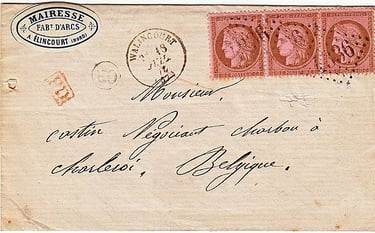 MAIRESSE
FABt D'ARCS
A ELINCOURT (NORD)
WALINCOURT
18
PD
Monsieur,
costin Négociant charbon à
charleroi, Belgique.